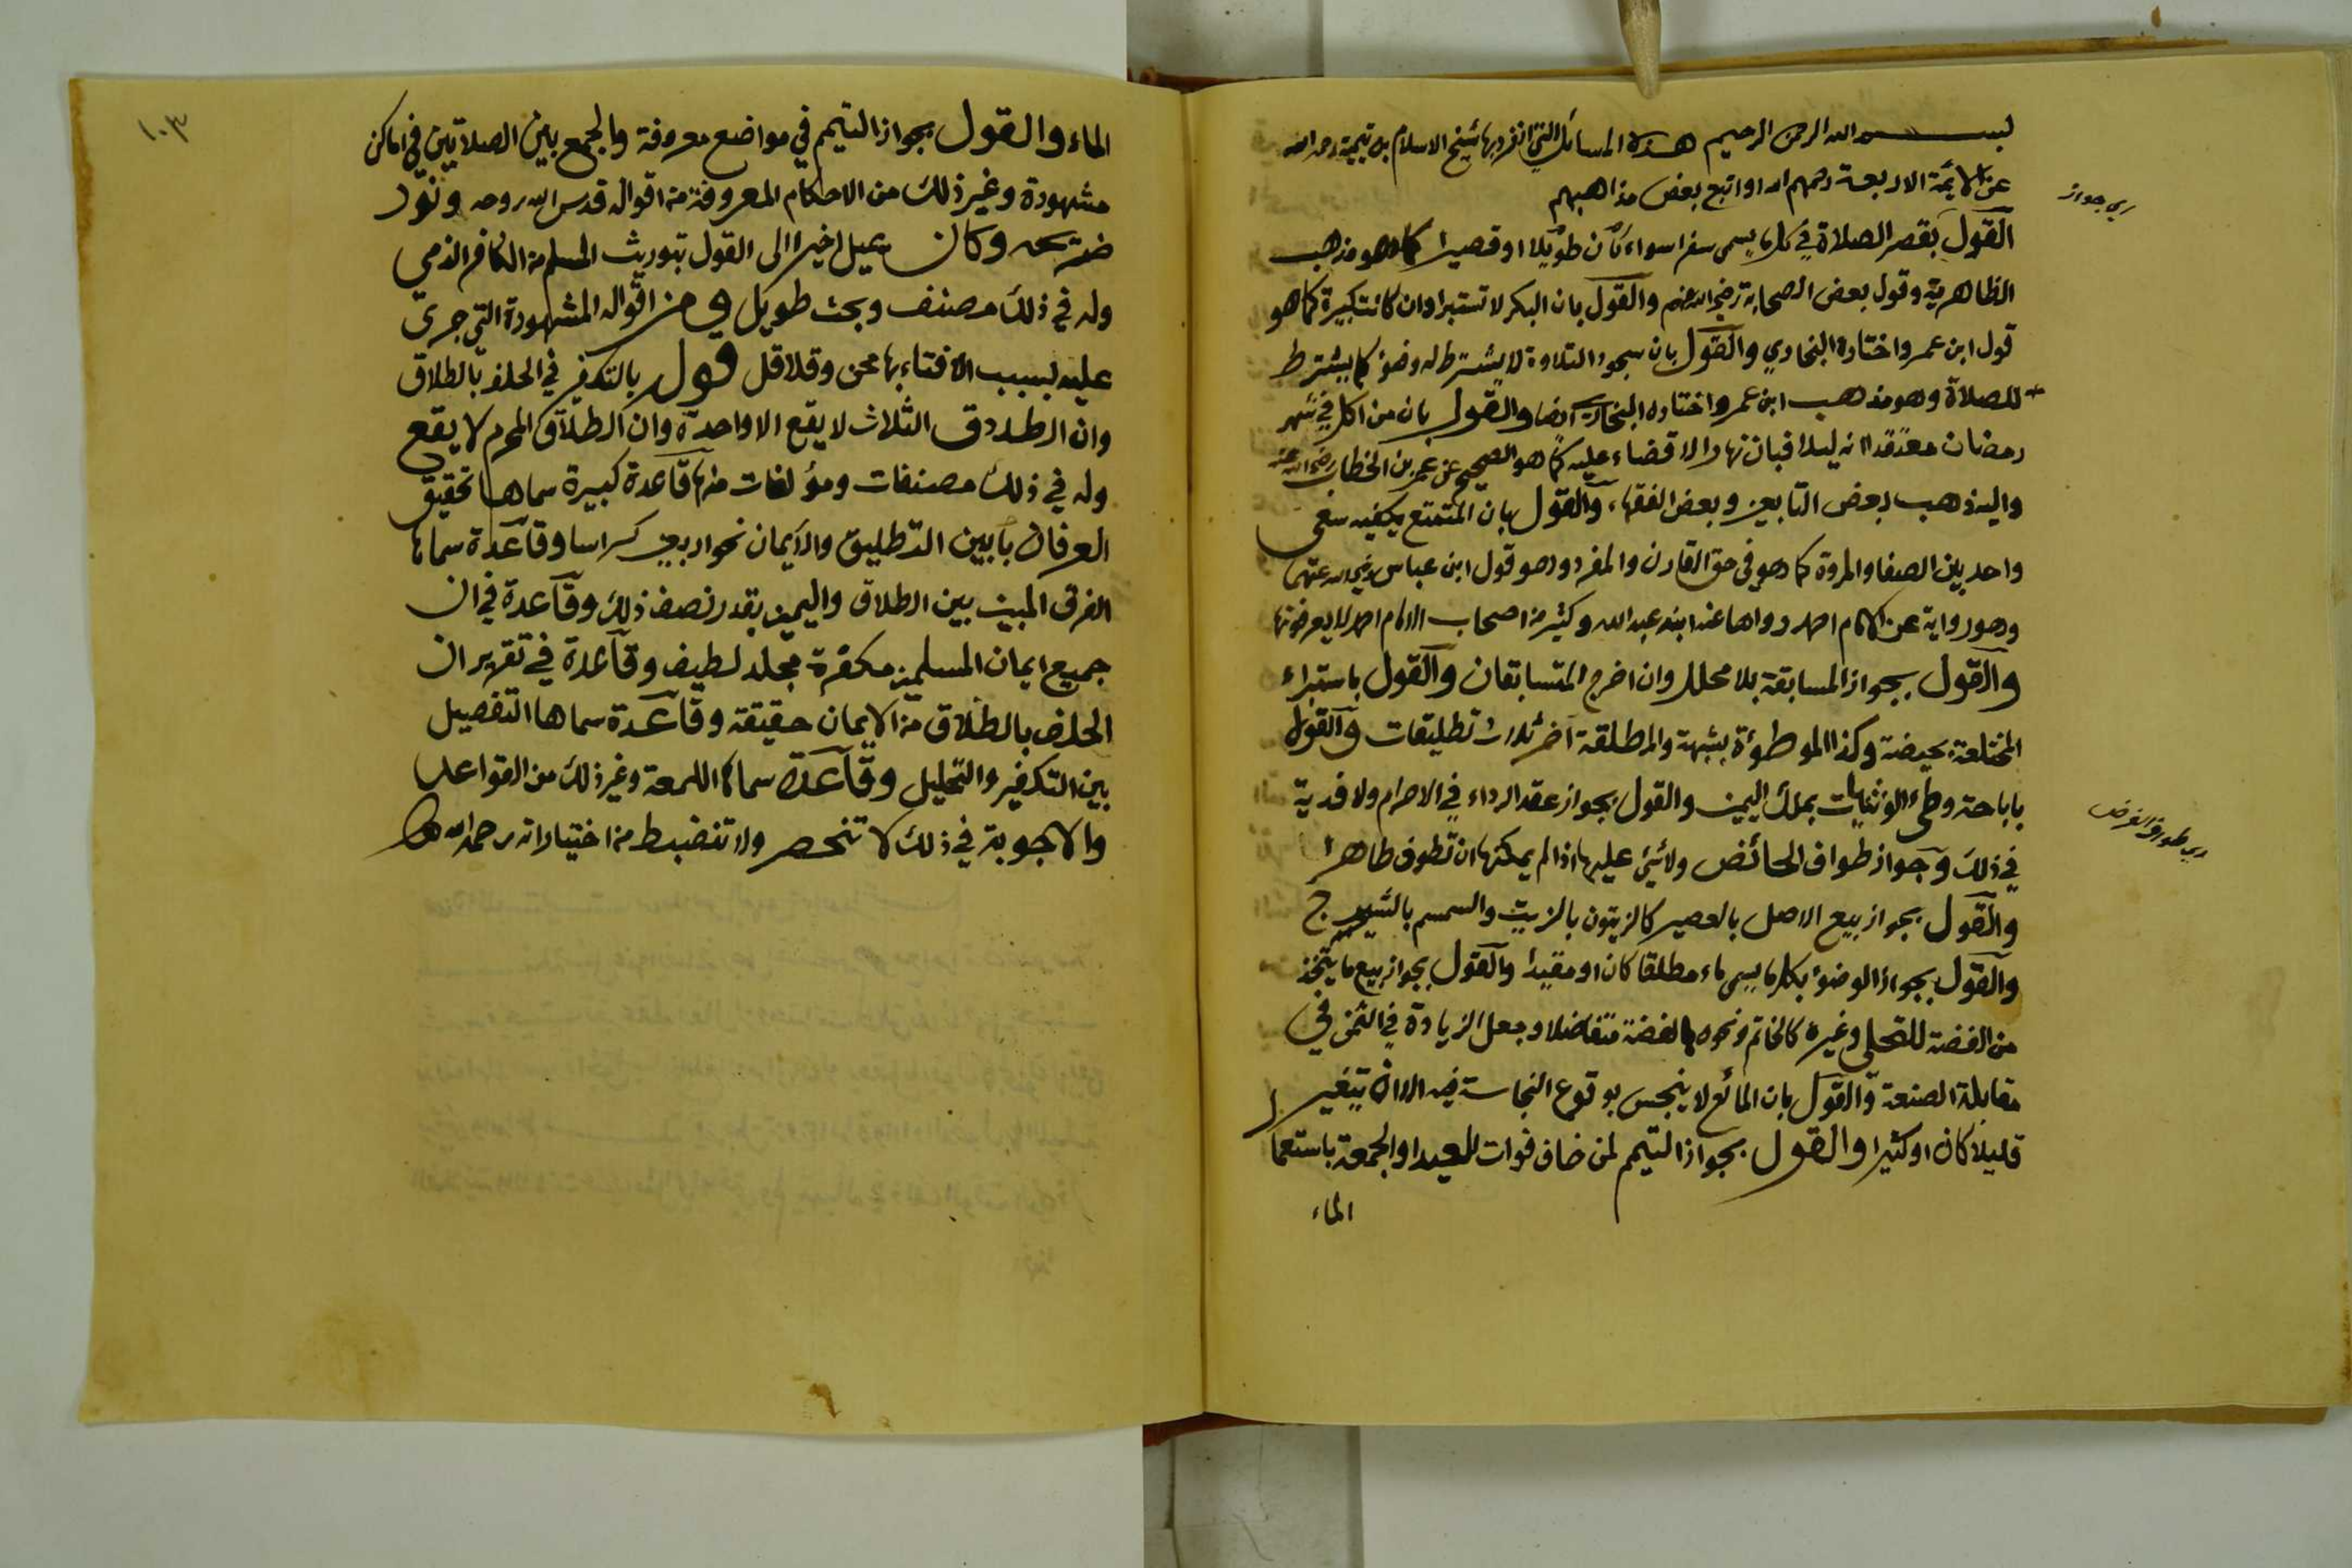 بسم الله الرحمن الرحيم هذه المسائل التي انفرد بها شيخ الاسلام بن تيمية رحمه الله
عن الائمة الاربعة رحمهم الله او اتبع بعض مذاهبهم
القول بقصر الصلاة في كل ما يسمى سفرا سواء كان طويلا او قصيرا كما هو مذهب
الظاهرية وقول بعض الصحابة رضي الله عنهم والقول بان البكر لا تستبرا وان كانت كبيرة كما هو
قول ابن عمر واختاره البخاري والقول بان سجود التلاوة لا يشترط له وضوء كما يشترط
للصلاة وهو مذهب ابن عمر واختاره البخاري ايضا والقول بان من اكل في شهر
رمضان معتقدا انه ليلا فبان نهارا لا قضاء عليه كما هو الصحيح عن عمر بن الخطاب رضي الله عنه
واليه ذهب بعض التابعين وبعض الفقهاء والقول بان المتمتع يكفيه سعي
واحد بين الصفا والمروة كما هو في حق القارن والمفرد وهو قول ابن عباس رضي الله عنهما
وهو رواية عن الامام احمد رواها عنه ابنه عبد الله وكثير من اصحاب الامام احمد لا يعرفونها
والقول بجواز المسابقة بلا محلل وان اخرج المتسابقان والقول باستبراء
المختلعة بحيضة وكذا الموطوءة بشبهة والمطلقة آخر ثلاث تطليقات والقول
باباحة وطي الوثنيات بملك اليمين والقول بجواز عقد الرداء في الاحرام ولا فدية
في ذلك وجواز طواف الحائض ولا شيء عليها اذا لم يمكنها ان تطوف طاهرا
والقول بجواز بيع الاصل بالعصير كالزيتون بالزيت والسمسم بالشيرج
والقول بجواز الوضوء بكل ما يسمى ماء مطلقا كان او مقيدا والقول بجواز بيع ما يتخذ
من الفضة للتحلي وغيره كالخاتم ونحوه بالفضة متفاضلا وجعل الزيادة في الثمن في
مقابلة الصنعة والقول بان المائع لا ينجس بوقوع النجاسة فيه الا ان يتغير
قليلا كان او كثيرا والقول بجواز التيمم لمن خاف فوات العيد او الجمعة باستعما
الماء
اي جواز
اي طواف الفرض
١٠٣
الماء والقول بجواز التيمم في مواضع معروفة والجمع بين الصلاتين في اماكن
مشهودة وغير ذلك من الاحكام المعروفة من اقواله قدس الله روحه ونور
ضريحه وكان يميل اخيرا الى القول بتوريث المسلم من الكافر الذمي
وله في ذلك مصنف وبحث طويل ومن اقواله المشهودة التي جرى
عليه بسبب الافتاء بها محن وقلاقل قوله بالتكفير في الحلف بالطلاق
وان الطلاق الثلاث لا يقع الا واحدة وان الطلاق المحرم لا يقع
وله في ذلك مصنفات ومؤلفات منها قاعدة كبيرة سماها تحقيق
الفرقان ما بين التطليق والايمان نحو اربعين كراسا وقاعدة سماها
الفرق المبين بين الطلاق واليمين بقدر نصف ذلك وقاعدة في ان
جميع ايمان المسلمين مكفرة مجلد لطيف وقاعدة في تقرير ان
الحلف بالطلاق من الايمان حقيقة وقاعدة سماها التفصيل
بين التكفير والتحليل وقاعدة سماها اللمعة وغير ذلك من القواعد
والاجوبة في ذلك لا تنحصر ولا تنضبط من اختياراته رحمه الله